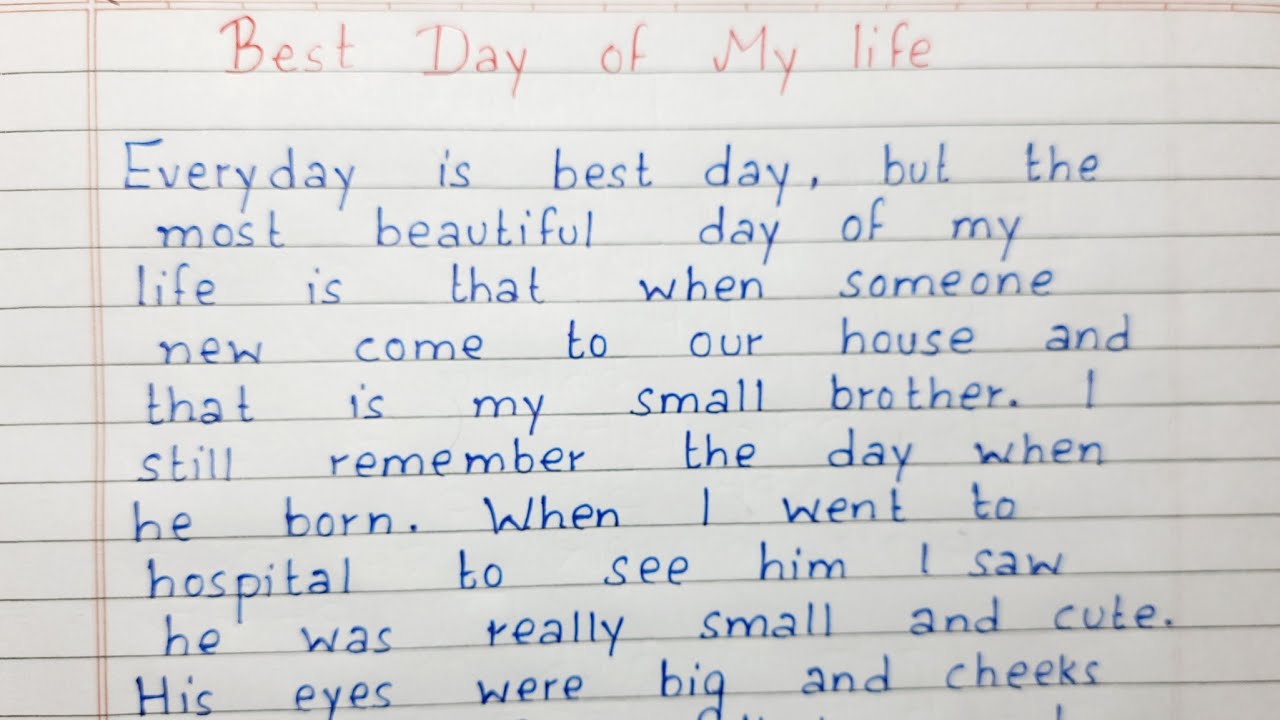 Best Day of My life
Everyday is best day, but the
most beautiful day of my
life is that when someone
new come to our house and
that is my small brother. I
still remember the day when
he born. When I went to
hospital to see him I saw
he was really small and cute.
His eyes were big and cheeks